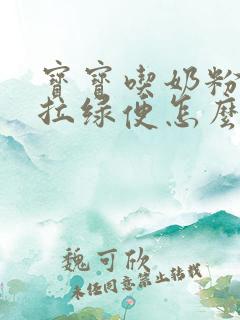 寶寶喫奶粉
拉綠便怎麼
魏可欣
未經同意禁止轉載